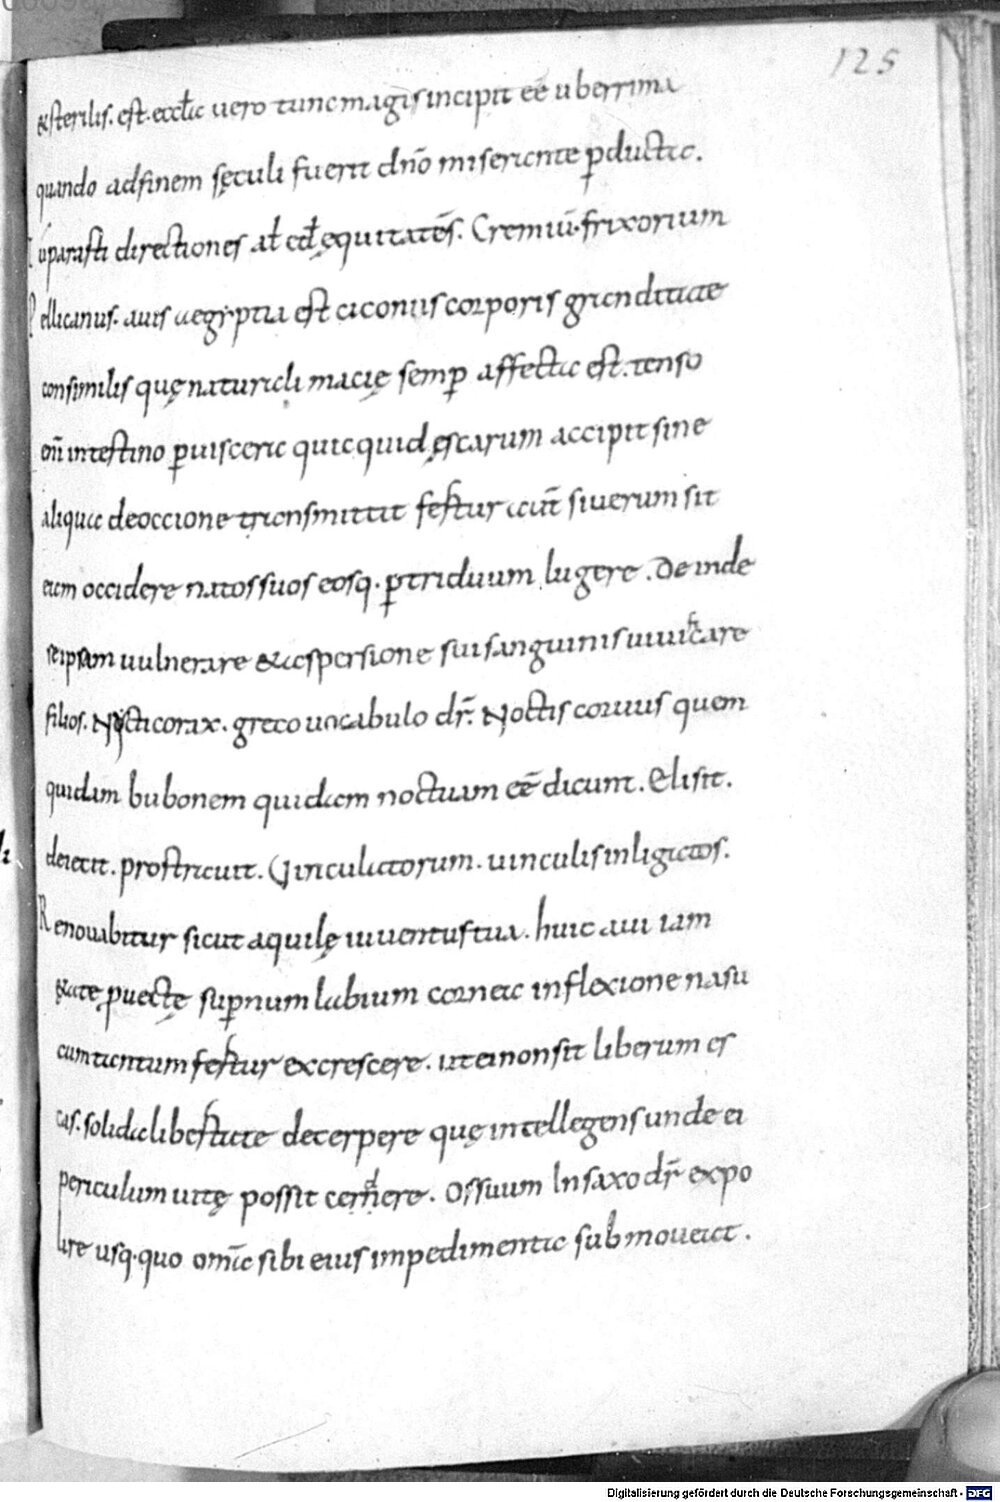 125
&sterilis. est. eccla uero tunc magis incipit eē uberrima
quando adfinem sęculi fuerit dn̄o miserante ꝑducta.
Tu parasti directiones al ęquitatēs. Cremiū. frixorium
Pellicanus. auis aegyptia est ciconiis corporis granditate
consimilis quę naturali macię semꝑ affecta est. tenso
eni intestino ꝑuiscera quicquid ęscarum accipit sine
aliqua decoccione transmittit fertur aut̄ siuerum sit
eam occidere natos suos eosq· ꝑ triduum lugere. Deinde
seipsam uulnerare & aspersione sui sanguinis uiuificare
filios. Nycticorax. greco uocabulo dr̄. Noctis coruus quem
quidam bubonem quidam noctuam eē dicunt. Elisit.
deiecit. prostrauit. Vinculatorum. uinculis inligatos.
Renouabitur sicut aquilę iuuentus tua. huic aui iam
ętate ꝑuectę suꝑnum labium cornea inflexione nasu
cum tantum fertur excrescere. ut ei non sit liberum es
cas. solida libertate decerpere quę intellegens unde ei
periculum uitę possit cernere. Ossuum In saxo dr̄ expo
lire usq· quo om̄ia sibi eius impedimenta submoueat.
Digitalisierung gefördert durch die Deutsche Forschungsgemeinschaft - DFG